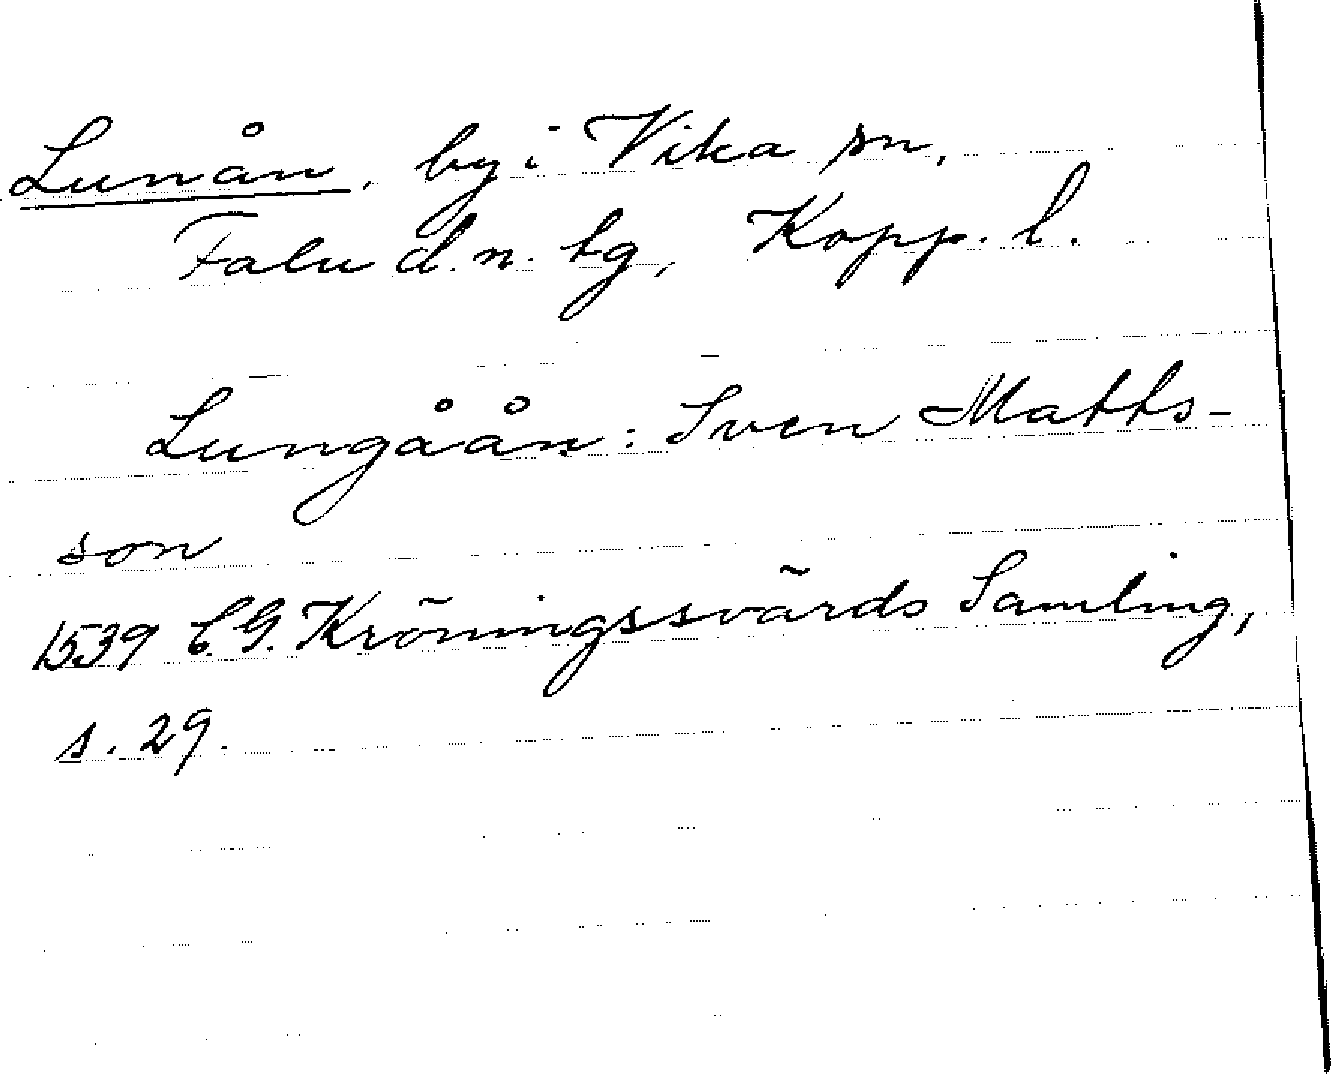 Lunån, by i Vika sn,
Falu d.n. tg, Kopp. l.
Lungåån: Sven Matts-
son
1539 C.G. Kröningssvärds Samling,
s. 29.